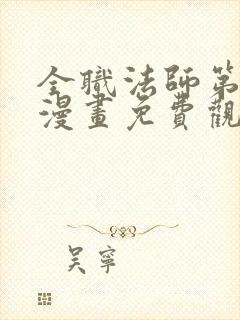 全職法師第
漫畫免費觀
吳寧